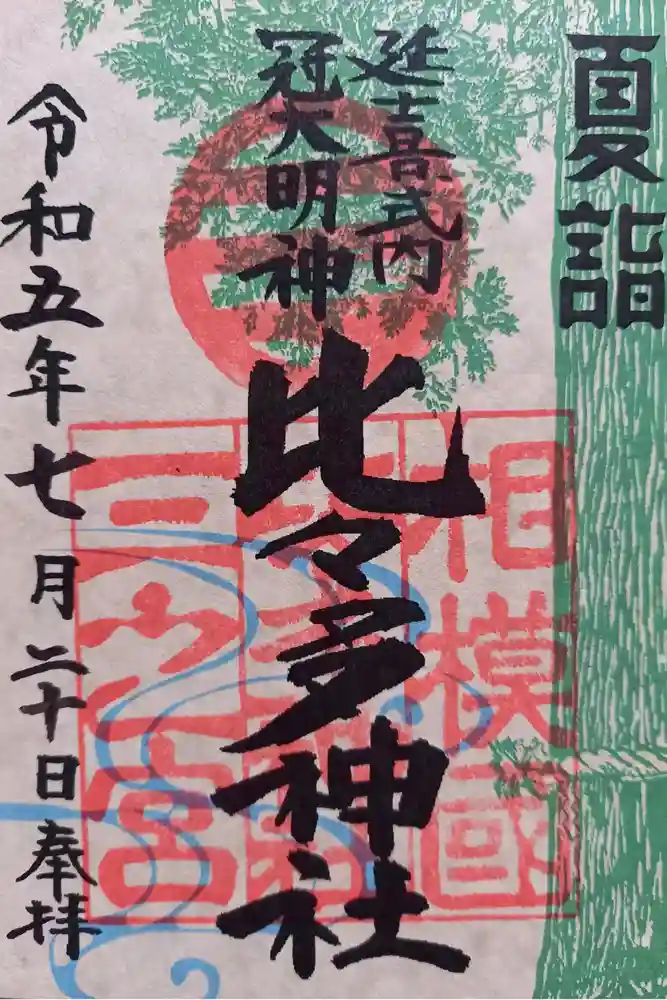 夏詣
延喜式内
冠大明神
比々多神社
相模國
比々多神社
三之宮
令和五年七月二十日奉拝